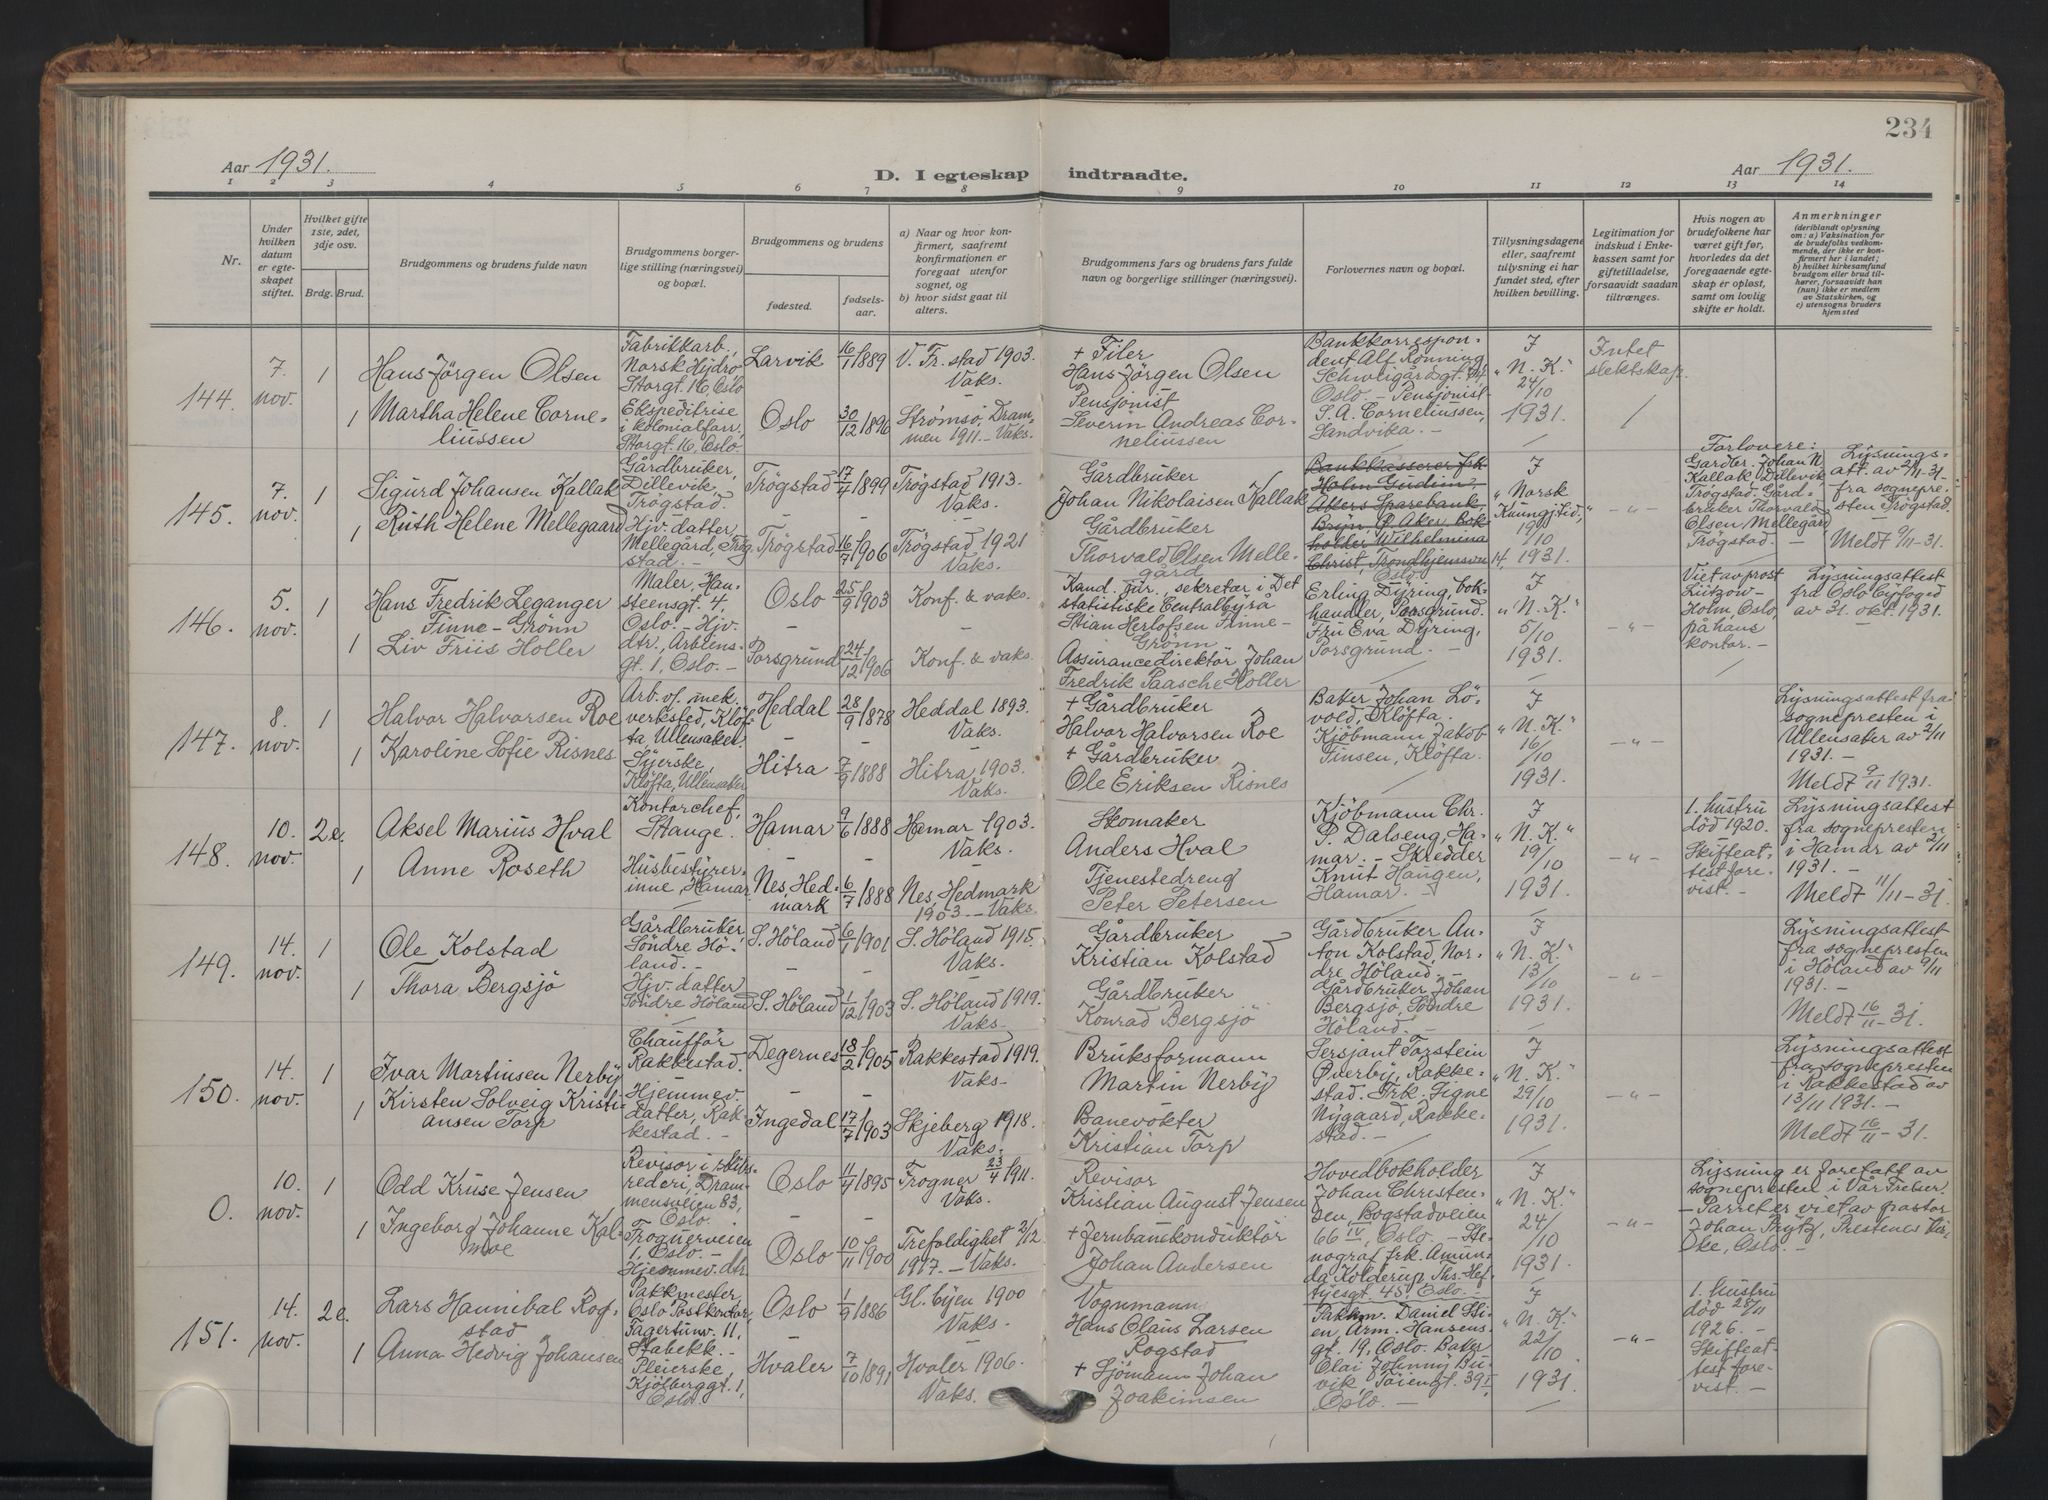 234
Aar 1931.
D. I egteskap indtraadte.
Aar 1931.
1 2 3 4 5 6 7 8 9 10 11 12 13 14
Nr.
Under hvilken datum er egteskapet stiftet.
Hvilket gifte 1ste, 2det, 3dje osv.
Brdg. Brud.
Brudgommens og brudens fulde navn
Brudgommens borgerlige stilling (næringsvei) og bopæl.
Brudgommens og brudens
fødested. fødselsaar.
a) Naar og hvor konfirmert, saafremt konfirmationen er foregaat utenfor sognet, og
b) hvor sidst gaat til alters.
Brudgommens fars og brudens fars fulde navn og borgerlige stillinger (næringsvei).
Forlovernes navn og bopæl.
Tillysningsdagene eller, saafremt tillysning ei har fundet sted, efter hvilken bevilling.
Legitimation for indskud i Enkekassen samt for giftetilladelse, forsaavidt saadan tiltrænges.
Hvis nogen av brudefolkene har været gift før, hvorledes da det foregaaende egteskap er opløst, samt om lovlig skifte er holdt.
Anmerkninger
(deriblandt oplysning om: a) Vaksination for de brudefolks vedkommende, der ikke er konfirmert her i landet; b) hvilket kirkesamfund brudgom eller brud tilhører, forsaavidt han (hun) ikke er medlem av Statskirken, og c) utensogns bruders hjemsted
144.
7. nov.
1
Hans Jörgen Olsen
Fabrikkarb.,
Norsk Hydro,
Storgt. 16, Oslo
Larvik
16/1 1889
V. Fr.stad 1903.
Vaks.
+ Filer
Hans Jörgen Olsen
1
Martha Helene Corne-
liussen
Ekspeditrise
i kolonialforr.,
Storgt. 16, Oslo.
Oslo
30/12 1896
Strømsø, Dram-
men 1911. – Vaks.
Pensjonist
Severin Andreas Cor-
neliussen
Bankkorrespon-
dent Alf Rönning,
Oslo. – Pensjonist
S. A. Corneliussen,
Sandvika. –
I
"N. K."
24/10
1931.
Intet
slektskap.
145.
7. nov.
1
Sigurd Johansen Kallak
Gårdbruker,
Dillevik,
Trögstad.
Trögstad
17/4 1899
Trögstad 1913.
Vaks.
Gårdbruker
Johan Nikolaisen Kallak
1
Ruth Helene Mellegaard
Hjv. datter,
Mellegård, Trög-
stad. –
Trögstad
16/7 1906
Trögstad 1921
Vaks.
Gårdbruker
Thorvald Olsen Melle-
gård
Bankkasserer frk.
Holm Gudim,
Akers Sparebank,
Bryn, Ö. Aker. Bok-
holder Wilhelmina
Christ. Trondhjemsvn 14,
Oslo.
I
"Norsk
Kunngj.tid.,"
19/10
1931.
– " –
Forlovere:
Gårdbr. Johan N.
Kallak, Dillevik,
Trögstad. Gård-
bruker Thorvald
Olsen Mellegård,
Trögstad. –
Lysnings-
att. av 2/11-31.
fra sognepre-
sten Trögstad.
Meldt 9/11-31.
146.
5. nov.
1
Hans Fredrik Leganger
Finne-Grönn
Maler, Han-
steensgt. 4,
Oslo. –
Oslo
25/9 1903
Konf. & vaks.
Kand. jur., sekretær i Det
statistiske Centralbyrå
Stian Herlofsen Finne-
Grönn
1
Liv Friis Holler
Hjv.
dtr., Arbiens-
gt. 1, Oslo. –
Porsgrund
24/12 1906
Konf. & vaks.
Assurancedirektör Johan
Fredrik Paasche Holler
Erling Dyring, bok-
handler, Porsgrund.
Fru Eva Dyring,
Porsgrund. –
I
"N. K."
5/10
1931.
– " –
Viet av prost
Lützow-
Holm, Oslo,
på hans
kontor. –
Lysningsattest
fra Oslo byfoged
av 31. okt. 1931.
147.
8. nov.
1
Halvor Halvorsen Roe
Arb. v/ mek.
verksted, Klöf-
ta, Ullensaker.
Heddal
28/9 1878
Heddal 1893.
Vaks.
+ Gårdbruker
Halvor Halvorsen Roe
1
Karoline Sofie Risnes
Syerske,
Klöfta, Ullensaker
Hitra
7/9 1888
Hitra 1903.
Vaks.
+ Gårdbruker
Ole Eriksen Risnes
Baker Johan Lö-
vold, Klöfta.
Kjöbmann Jakob
Tinsen, Klöfta.
I
"N. K."
16/10
1931.
– " –
Lysningsattest fra
sognepresten i
Ullensaker av 2/11
1931. –
Meldt 9/11 1931.
148.
10. nov.
2e.
Aksel Marius Hval
Kontorchef,
Stange.
Hamar
9/6 1888
Hamar 1903.
Vaks.
Skomaker
Anders Hval
1
Anne Roseth
Husbestyrer-
inne, Hamar
Nes, Hed-
mark
6/7 1888
Nes, Hedmark
1903. – Vaks.
Tjenestedreng
Peter Petersen
Kjöbmann Chr.
P. Dalseng, Ha-
mar. – Skredder
Knut Haugen,
Hamar. –
I
"N. K."
19/10
1931.
– " –
1. hustru
död 1920.
Skifteat-
test fore-
vist. –
Lysningsattest
fra sognepresten
i Hamar av 2/11
1931. –
Meldt 11/11-31.
149.
14. nov.
1
Ole Kolstad
Gårdbruker,
Söndre Hö-
land. –
S. Höland
6/1 1901
S. Höland 1915.
Vaks.
Gårdbruker
Kristian Kolstad
1
Thora Bergsjö
Hjv. datter
Söndre Höland
S. Höland
1/12 1903
S. Höland 1919.
Vaks.
Gårdbruker
Konrad Bergsjö
Gårdbruker An-
ton Kolstad, Nor-
dre Höland. –
Gårdbruker Johan
Bergsjö, Söndre
Höland. –
I
"N. K."
13/10
1931.
– " –
Lysningsattest
fra sognepresten
i Höland av 9/11
1931. –
Meldt 16/11-31.
150.
14. nov.
1
Ivar Martinsen Nerby
Chaufför
Rakkestad.
Degernes
18/2 1905
Rakkestad 1919.
Vaks.
Bruksformann
Martin Nerby
1
Kirsten Solveig Kristi-
ansen Torp
Hjemmev.
datter, Rak-
kestad. –
Ingedal
17/7 1903
Skjeberg 1918.
Vaks.
Banevokter
Kristian Torp
Sersjant Torstein
Øverby, Rakke-
stad. Frk. Signe
Nygaard, Rakke-
stad. –
I
"N. K."
29/10
1931.
– " –
Lysningsattest
fra sognepresten
i Rakkestad av
13/11 1931. –
Meldt 16/11-31.
0.
10. nov.
1
Odd Kruse Jensen
Revisor i skibs-
rederi, Dram-
mensveien 83,
Oslo.
Oslo
11/4 1895
Frogner 23/4 1911.
Vaks.
Revisor
Kristian August Jensen
1
Ingeborg Johanne Kal-
moe
Frognerveien
1, Oslo. –
Hjemmev. dtr.
Oslo
10/11 1900
Trefoldighet 2/12
1917. – Vaks.
+ Jernbanekonduktör
Johan Andersen
Hovedbokholder
Johan Christen-
sen, Bogstadveien
66 IV, Oslo. – Ste-
nograf frk. Amun-
da Kolderup, Ths. Hef-
tyesgt. 45, Oslo. –
I
"N. K."
24/10
1931.
– " –
Lysning er foretatt av
sognepresten i Vår Frelser.
– Parret er viet av pastor
Johan Prytz, Prestenes kir-
ke, Oslo. –
151.
14. nov.
2e.
Lars Hannibal Rog-
stad
Pakkmester,
Oslo Postkontor,
Fagertunv. 11,
Stabekk. –
Oslo
1/9 1886
Gl. byen 1900
Vaks.
Vognmann
Hans Claus Larsen
Rogstad
1
Anna Hedvig Johansen
Pleierske,
Kjölberggt. 1,
Oslo.
Hvaler
7/10 1891
Hvaler 1906.
Vaks.
+ Sjömann Johan
Joakimsen
Pakkm. Daniel Sti-
en, Arm. Hansens
gt. 19, Oslo. Baker
Olai Johnny Bu-
vik, Töiengt. 39 I,
Oslo. –
I
"N. K."
22/10
1931.
– " –
1. hustru
död 28/11
1926. –
Skifteat-
test fore-
vist. –